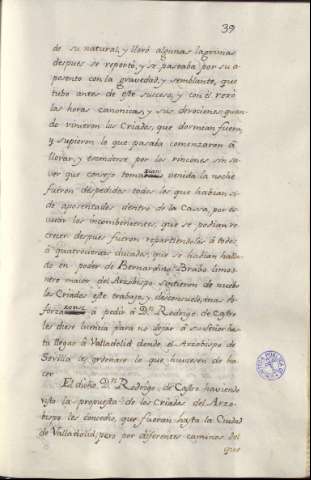 39
de su natural, y lloró algunas lagrimas
despues se reportó, y se paseaba por su a-
posento con la gravedad, y semblante, que
tubo antes de este suceso, y con el rezó
las horas canonicas, y sus devociones; quan-
do vinieron los Criados, que dormian fuera,
y supieron lo que pasaba comenzaron á
llorar, y por los rincones sin sa-
ver que consejo tomar venida la noche
fueron despedidos todos los que habian si-
do aposentados dentro de la Cassa, por es-
cusar los incombenientes, que se podian re-
crecer despues fueron repartiendoles á todos
á quatrocientos ducados, que se habian halla-
do en poder de Bernardino Brabo limos-
nero maior del Arzobispo sintieron de nuebo
los Criados este trabajo, y desconsuelo, mas es-
á pedir á Dn. Rodrigo de Castro
les diese licencia para no dejar á su Señor has-
ta llegar á Valladolid donde el Arzobispo de
Sevilla les ordenare lo que huviesen de ha-
cer
El dicho Dn. Rodrigo de Castro haviendo
visto la propuesta de los Criados del Arzo-
bispo les concedio, que fueran hasta la Ciudad
de Valladolid, pero por diferentes caminos del
que